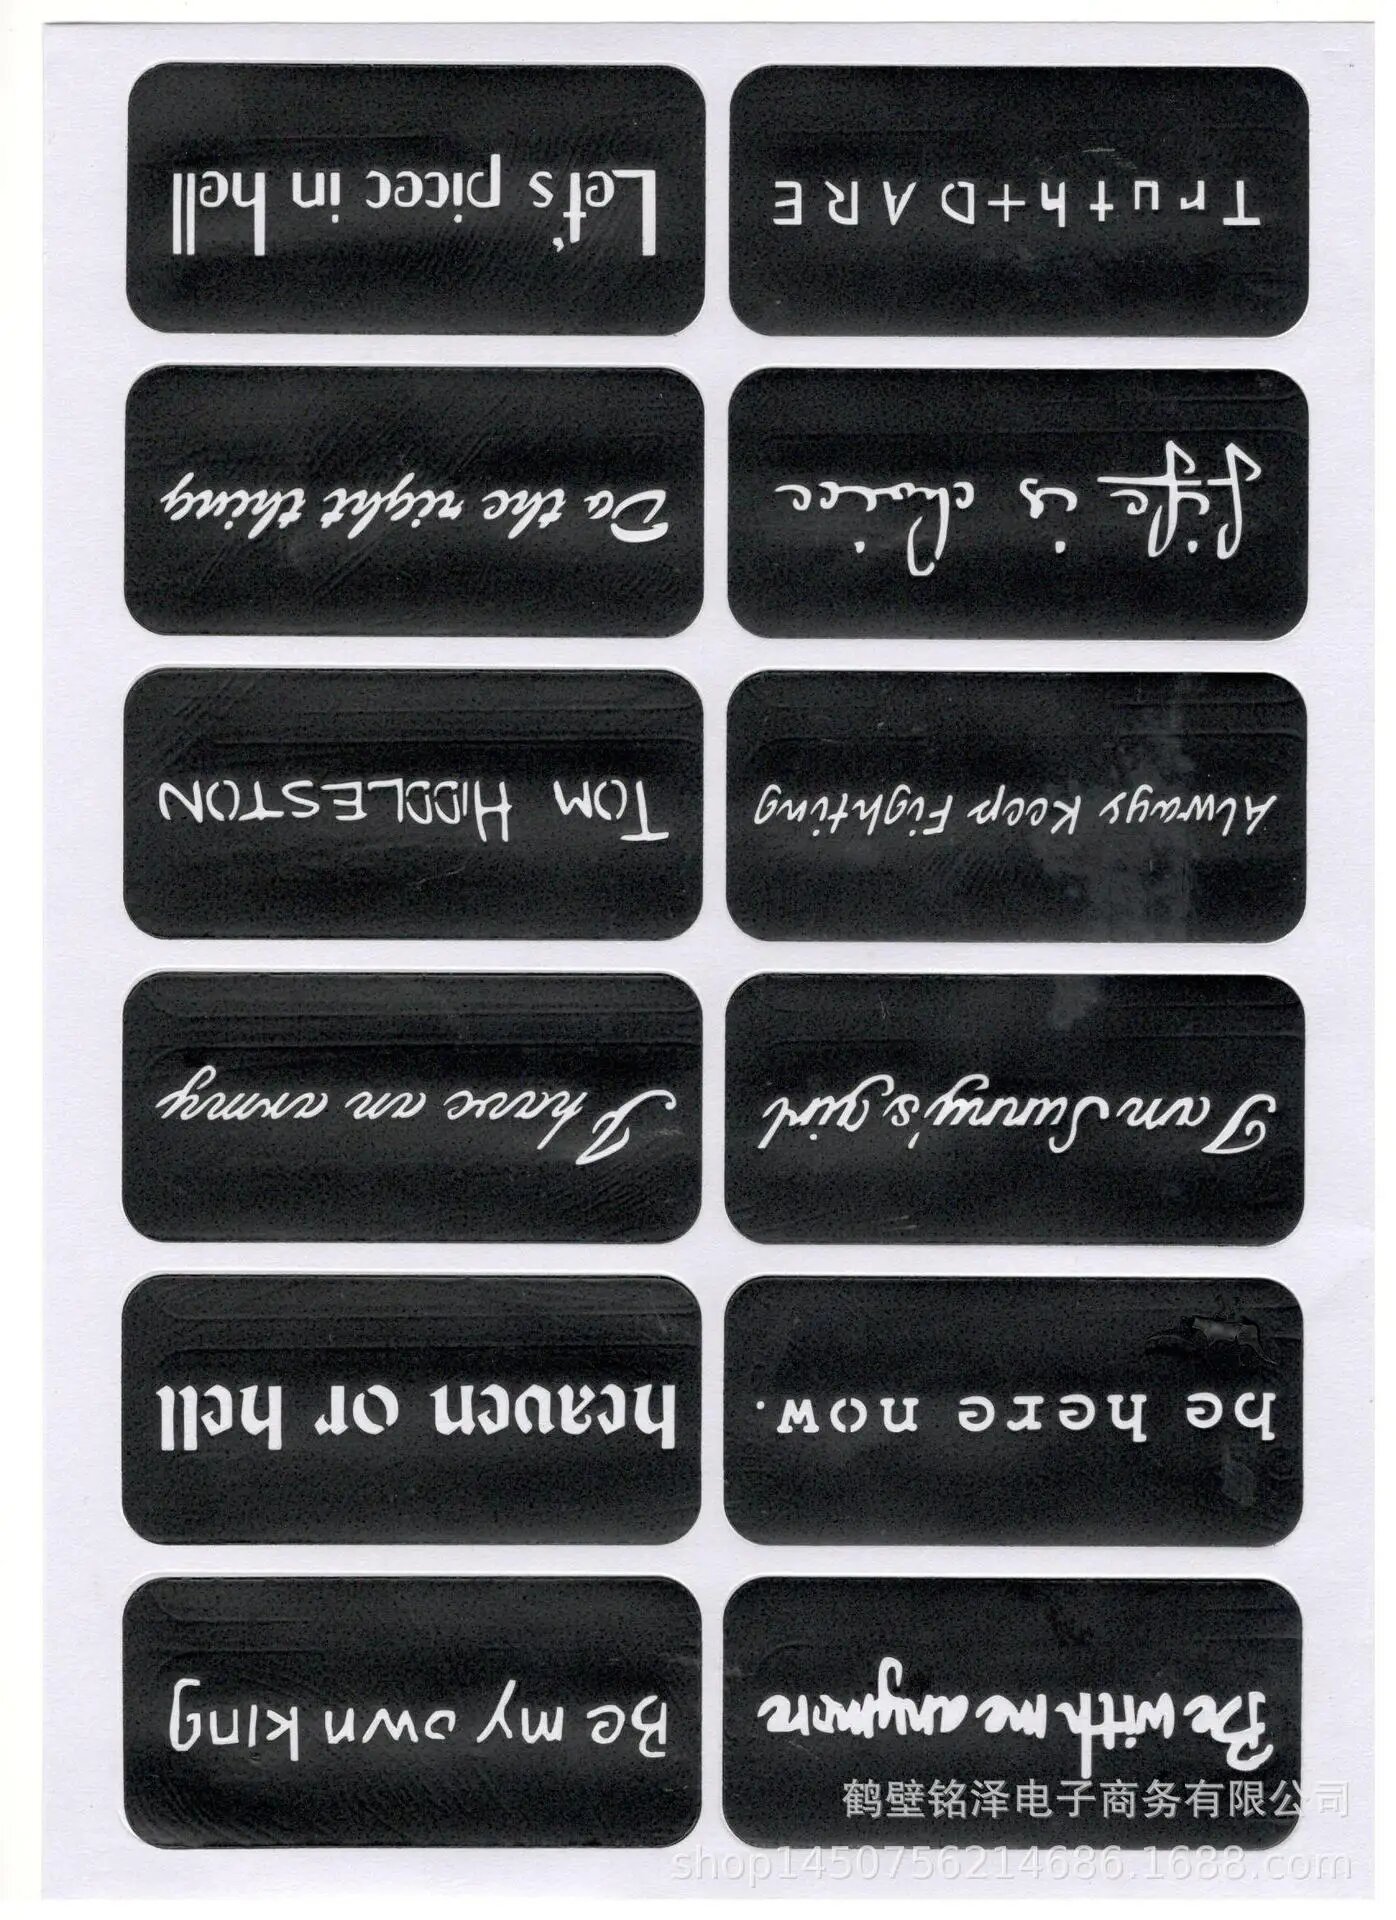 Let's picec in hell
Truth+DARE
Do the right thing
life is choice
TOM HIDDLESTON
Always Keep Fighting
I have an army
I am Sunny's girl
heaven or hell
be here now.
Be my own king
Be with me anymore
鹤壁铭泽电子商务有限公司
shop1450756214686.1688.com